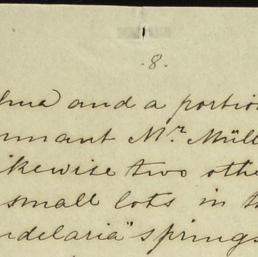 .8.
hua and a portio
nnant Mr. Müll
ikewise two othe
small lots in th
ndelaria" springs